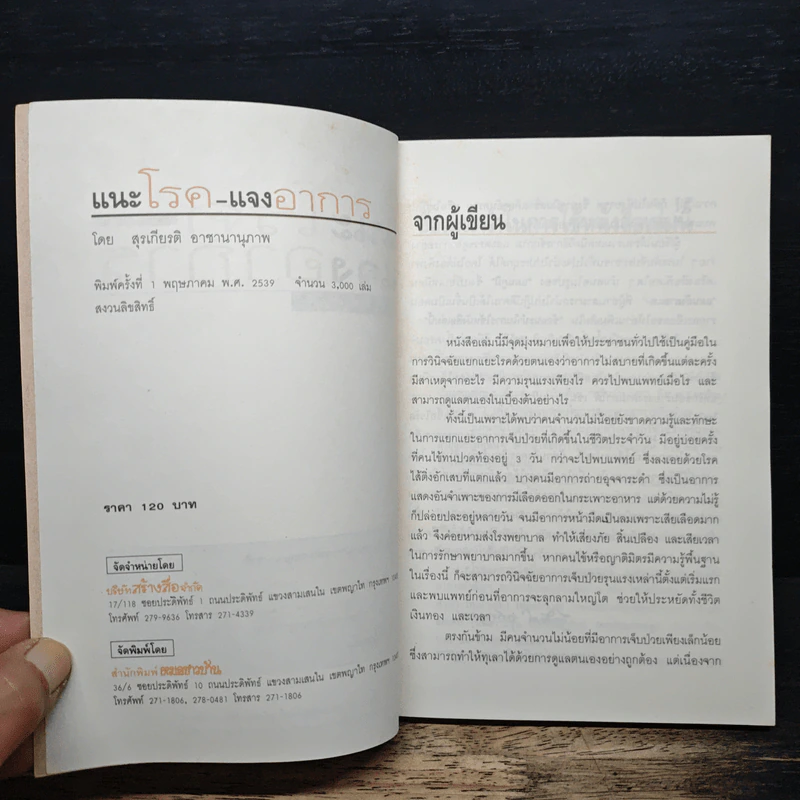 แนะโรค-แจงอาการ
โดย สุรเกียรติ อาชานานุภาพ
พิมพ์ครั้งที่ 1 พฤษภาคม พ.ศ. 2539 จำนวน 3,000 เล่ม
สงวนลิขสิทธิ์
ราคา 120 บาท
จัดจำหน่ายโดย
บริษัทสร้างสื่อจำกัด
17/118 ซอยประดิพัทธ์ 1 ถนนประดิพัทธ์ แขวงสามเสนใน เขตพญาไท กรุงเทพฯ
โทรศัพท์ 279-9636 โทรสาร 271-4339
จัดพิมพ์โดย
สำนักพิมพ์ หมอชาวบ้าน
36/6 ซอยประดิพัทธ์ 10 ถนนประดิพัทธ์ แขวงสามเสนใน เขตพญาไท กรุงเทพฯ
โทรศัพท์ 271-1806, 278-0481 โทรสาร 271-1806
จากผู้เขียน
หนังสือเล่มนี้มีจุดมุ่งหมายเพื่อให้ประชาชนทั่วไปใช้เป็นคู่มือใน
การวินิจฉัยแยกแยะโรคด้วยตนเองว่าอาการไม่สบายที่เกิดขึ้นแต่ละครั้ง
มีสาเหตุจากอะไร มีความรุนแรงเพียงไร ควรไปพบแพทย์เมื่อไร และ
สามารถดูแลตนเองในเบื้องต้นอย่างไร
ทั้งนี้เป็นเพราะได้พบว่าคนจำนวนไม่น้อยยังขาดความรู้และทักษะ
ในการแยกแยะอาการเจ็บป่วยที่เกิดขึ้นในชีวิตประจำวัน มีอยู่บ่อยครั้ง
ที่คนไข้ทนปวดท้องอยู่ 3 วัน กว่าจะไปพบแพทย์ ซึ่งลงเอยด้วยโรค
ไส้ติ่งอักเสบที่แตกแล้ว บางคนมีอาการถ่ายอุจจาระดำ ซึ่งเป็นอาการ
แสดงอันจำเพาะของการมีเลือดออกในกระเพาะอาหาร แต่ด้วยความไม่รู้
ก็ปล่อยปละอยู่หลายวัน จนมีอาการหน้ามืดเป็นลมเพราะเสียเลือดมาก
แล้ว จึงค่อยหามส่งโรงพยาบาล ทำให้เสี่ยงภัย สิ้นเปลือง และเสียเวลา
ในการรักษาพยาบาลมากขึ้น หากคนไข้หรือญาติมิตรมีความรู้พื้นฐาน
ในเรื่องนี้ ก็จะสามารถวินิจฉัยอาการเจ็บป่วยรุนแรงเหล่านี้ตั้งแต่เริ่มแรก
และพบแพทย์ก่อนที่อาการจะลุกลามใหญ่โต ช่วยให้ประหยัดทั้งชีวิต
เงินทอง และเวลา
ตรงกันข้าม มีคนจำนวนไม่น้อยที่มีอาการเจ็บป่วยเพียงเล็กน้อย
ซึ่งสามารถทำให้ทุเลาได้ด้วยการดูแลตนเองอย่างถูกต้อง แต่เนื่องจาก